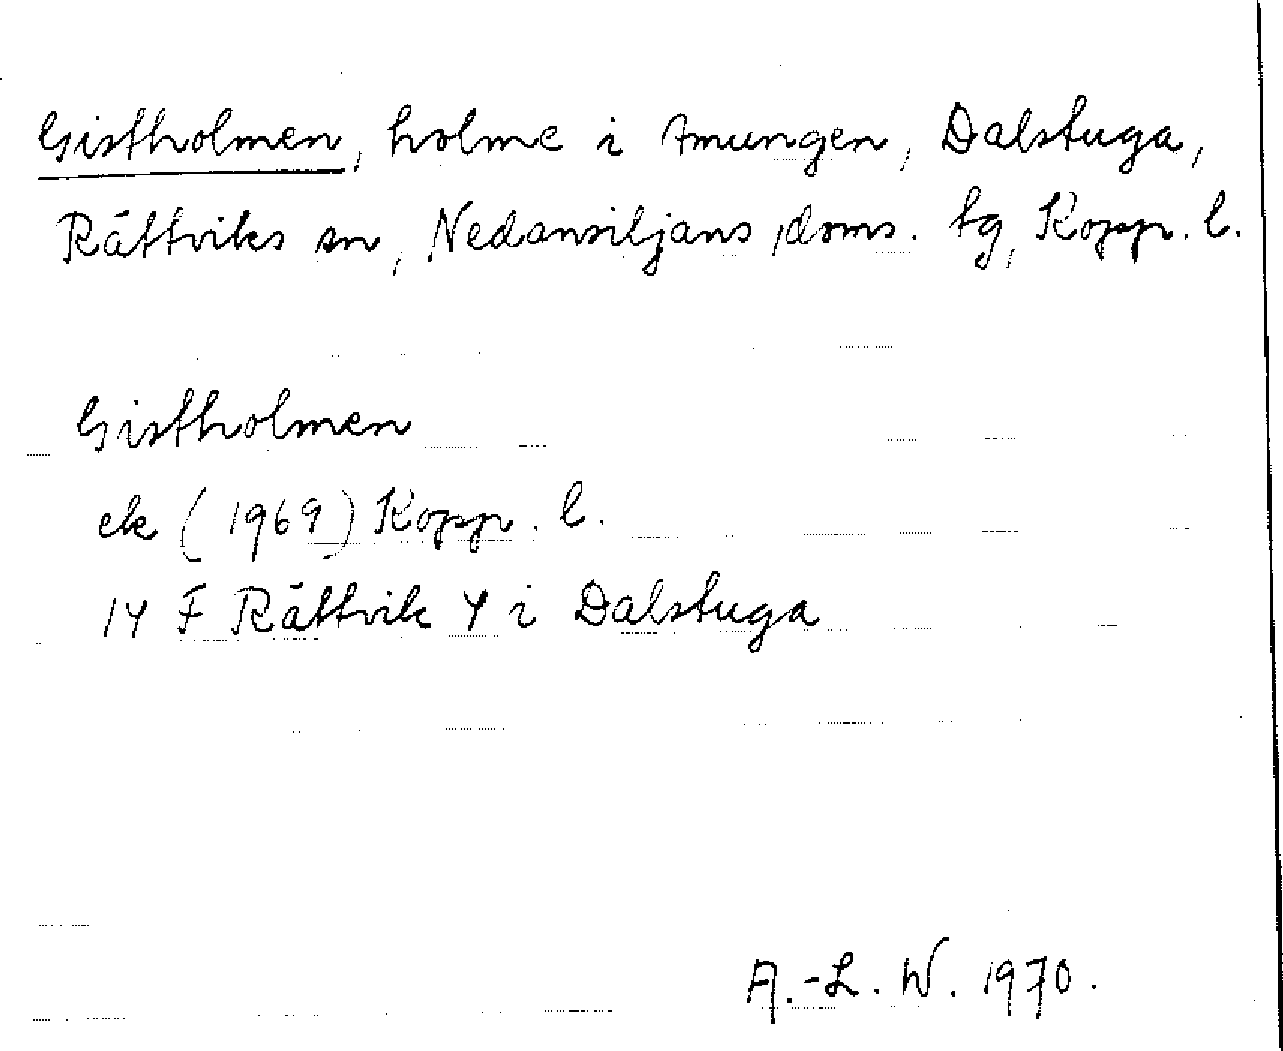 Gistholmen, holme i Amungen, Dalstuga,
Rättviks sn, Nedansiljans doms. tg, Kopp. l.
Gistholmen
ek (1969) Kopp. l.
14 F Rättvik 4 i Dalstuga
A.-L. W. 1970.